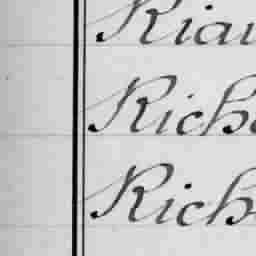 Riau
Riche
Rich